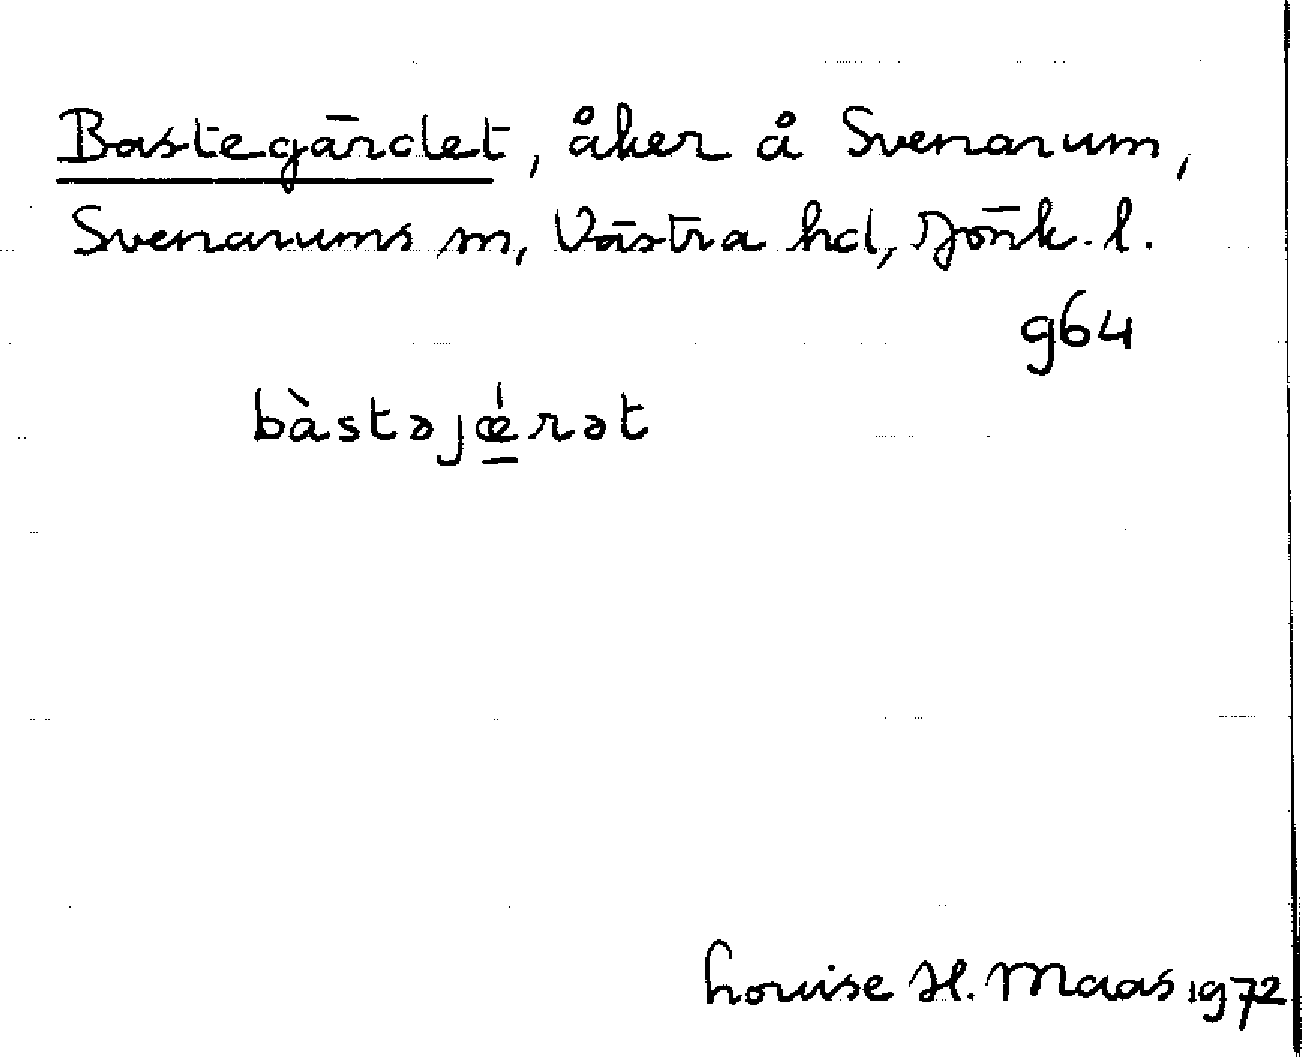 Bastegärdet, åker å Svenarum,
Svenarums sn, Västra hd, Jönk. l.
964
bàstəjœ́rət
Louise H. Maas 1972